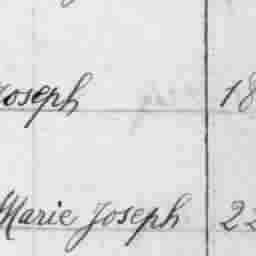 Joseph 18
Marie Joseph 22